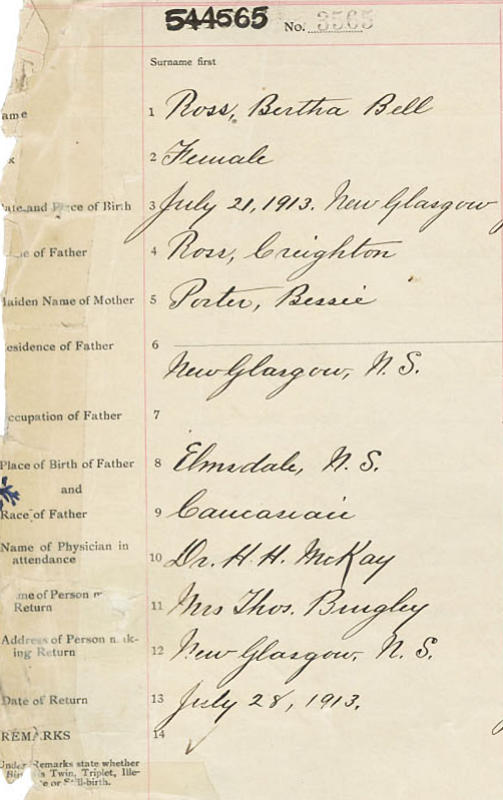 544565 No. 3565
Surname first
ame 1 Ross, Bertha Bell
x 2 Female
ate and Place of Birth 3 July 21, 1913. New Glasgow
e of Father 4 Ross, Creighton
aiden Name of Mother 5 Porter, Bessie
esidence of Father 6
New Glasgow, N. S.
ccupation of Father 7
Place of Birth of Father 8 Elmsdale, N. S.
and
Race of Father 9 Caucasian
Name of Physician in
attendance 10 Dr. H. H. McKay
me of Person m
Return 11 Mrs Thos. Bingley
Address of Person mak-
ing Return 12 New Glasgow, N. S.
Date of Return 13 July 28, 1913.
REMARKS 14
Under Remarks state whether
Bir is Twin, Triplet, Ille-
e or Still-birth.